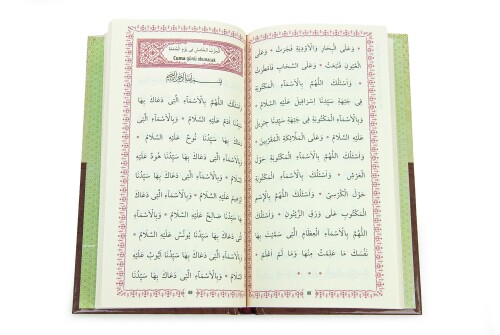 وَعَلَى الْبِحَارِ وَالْاَوْدِيَةِ فَجَرَتْ * وَعَلَى
الْعُيُونِ فَنَبَعَتْ * وَعَلَى السَّحَابِ فَاَمْطَرَتْ
* وَاَسْئَلُكَ اللّٰهُمَّ بِالْاَسْمَاءِ الْمَكْتُوبَةِ
فِى جَبْهَةِ سَيِّدِنَا اِسْرَافِيلَ عَلَيْهِ السَّلَامُ *
وَبِالْاَسْمَاءِ الْمَكْتُوبَةِ فِى جَبْهَةِ سَيِّدِنَا جِبْرِيلَ
عَلَيْهِ السَّلَامُ * وَعَلَى الْمَلٰئِكَةِ الْمُقَرَّبِينَ *
وَاَسْئَلُكَ اللّٰهُمَّ بِالْاَسْمَاءِ الْمَكْتُوبَةِ حَوْلَ
الْعَرْشِ * وَاَسْئَلُكَ بِالْاَسْمَاءِ الْمَكْتُوبَةِ
حَوْلَ الْكُرْسِىِّ * وَاَسْئَلُكَ اللّٰهُمَّ بِالْاِسْمِ
الْمَكْتُوبِ عَلَى وَرَقِ الزَّيْتُونِ * وَاَسْئَلُكَ
اللّٰهُمَّ بِالْاَسْمَاءِ الْعِظَامِ الَّتِى سَمَّيْتَ بِهَا
نَفْسَكَ مَا عَلِمْتُ مِنْهَا وَمَا لَمْ اَعْلَمْ *
* * *
اَلْحِزْبُ الْخَامِسُ فِى يَوْمِ الْجُمُعَةِ
Cuma günü okunacak
بِسْمِ اللّٰهِ الرَّحْمٰنِ الرَّحِيمِ
وَاَسْئَلُكَ اللّٰهُمَّ بِالْاَسْمَاءِ الَّتِى دَعَاكَ بِهَا
سَيِّدُنَا اٰدَمُ عَلَيْهِ السَّلَامُ * وَبِالْاَسْمَاءِ الَّتِى
دَعَاكَ بِهَا سَيِّدُنَا نُوحٌ عَلَيْهِ السَّلَامُ *
وَبِالْاَسْمَاءِ الَّتِى دَعَاكَ بِهَا سَيِّدُنَا هُودٌ عَلَيْهِ
السَّلَامُ * وَبِالْاَسْمَاءِ الَّتِى دَعَاكَ بِهَا سَيِّدُنَا
اِبْرٰهِيمُ عَلَيْهِ السَّلَامُ * وَبِالْاَسْمَاءِ الَّتِى دَعَاكَ
بِهَا سَيِّدُنَا صَالِحٌ عَلَيْهِ السَّلَامُ * وَبِالْاَسْمَاءِ
الَّتِى دَعَاكَ بِهَا سَيِّدُنَا يُونُسُ عَلَيْهِ السَّلَامُ *
وَبِالْاَسْمَاءِ الَّتِى دَعَاكَ بِهَا سَيِّدُنَا اَيُّوبُ عَلَيْهِ
السَّلَامُ * وَبِالْاَسْمَاءِ الَّتِى دَعَاكَ بِهَا سَيِّدُنَا